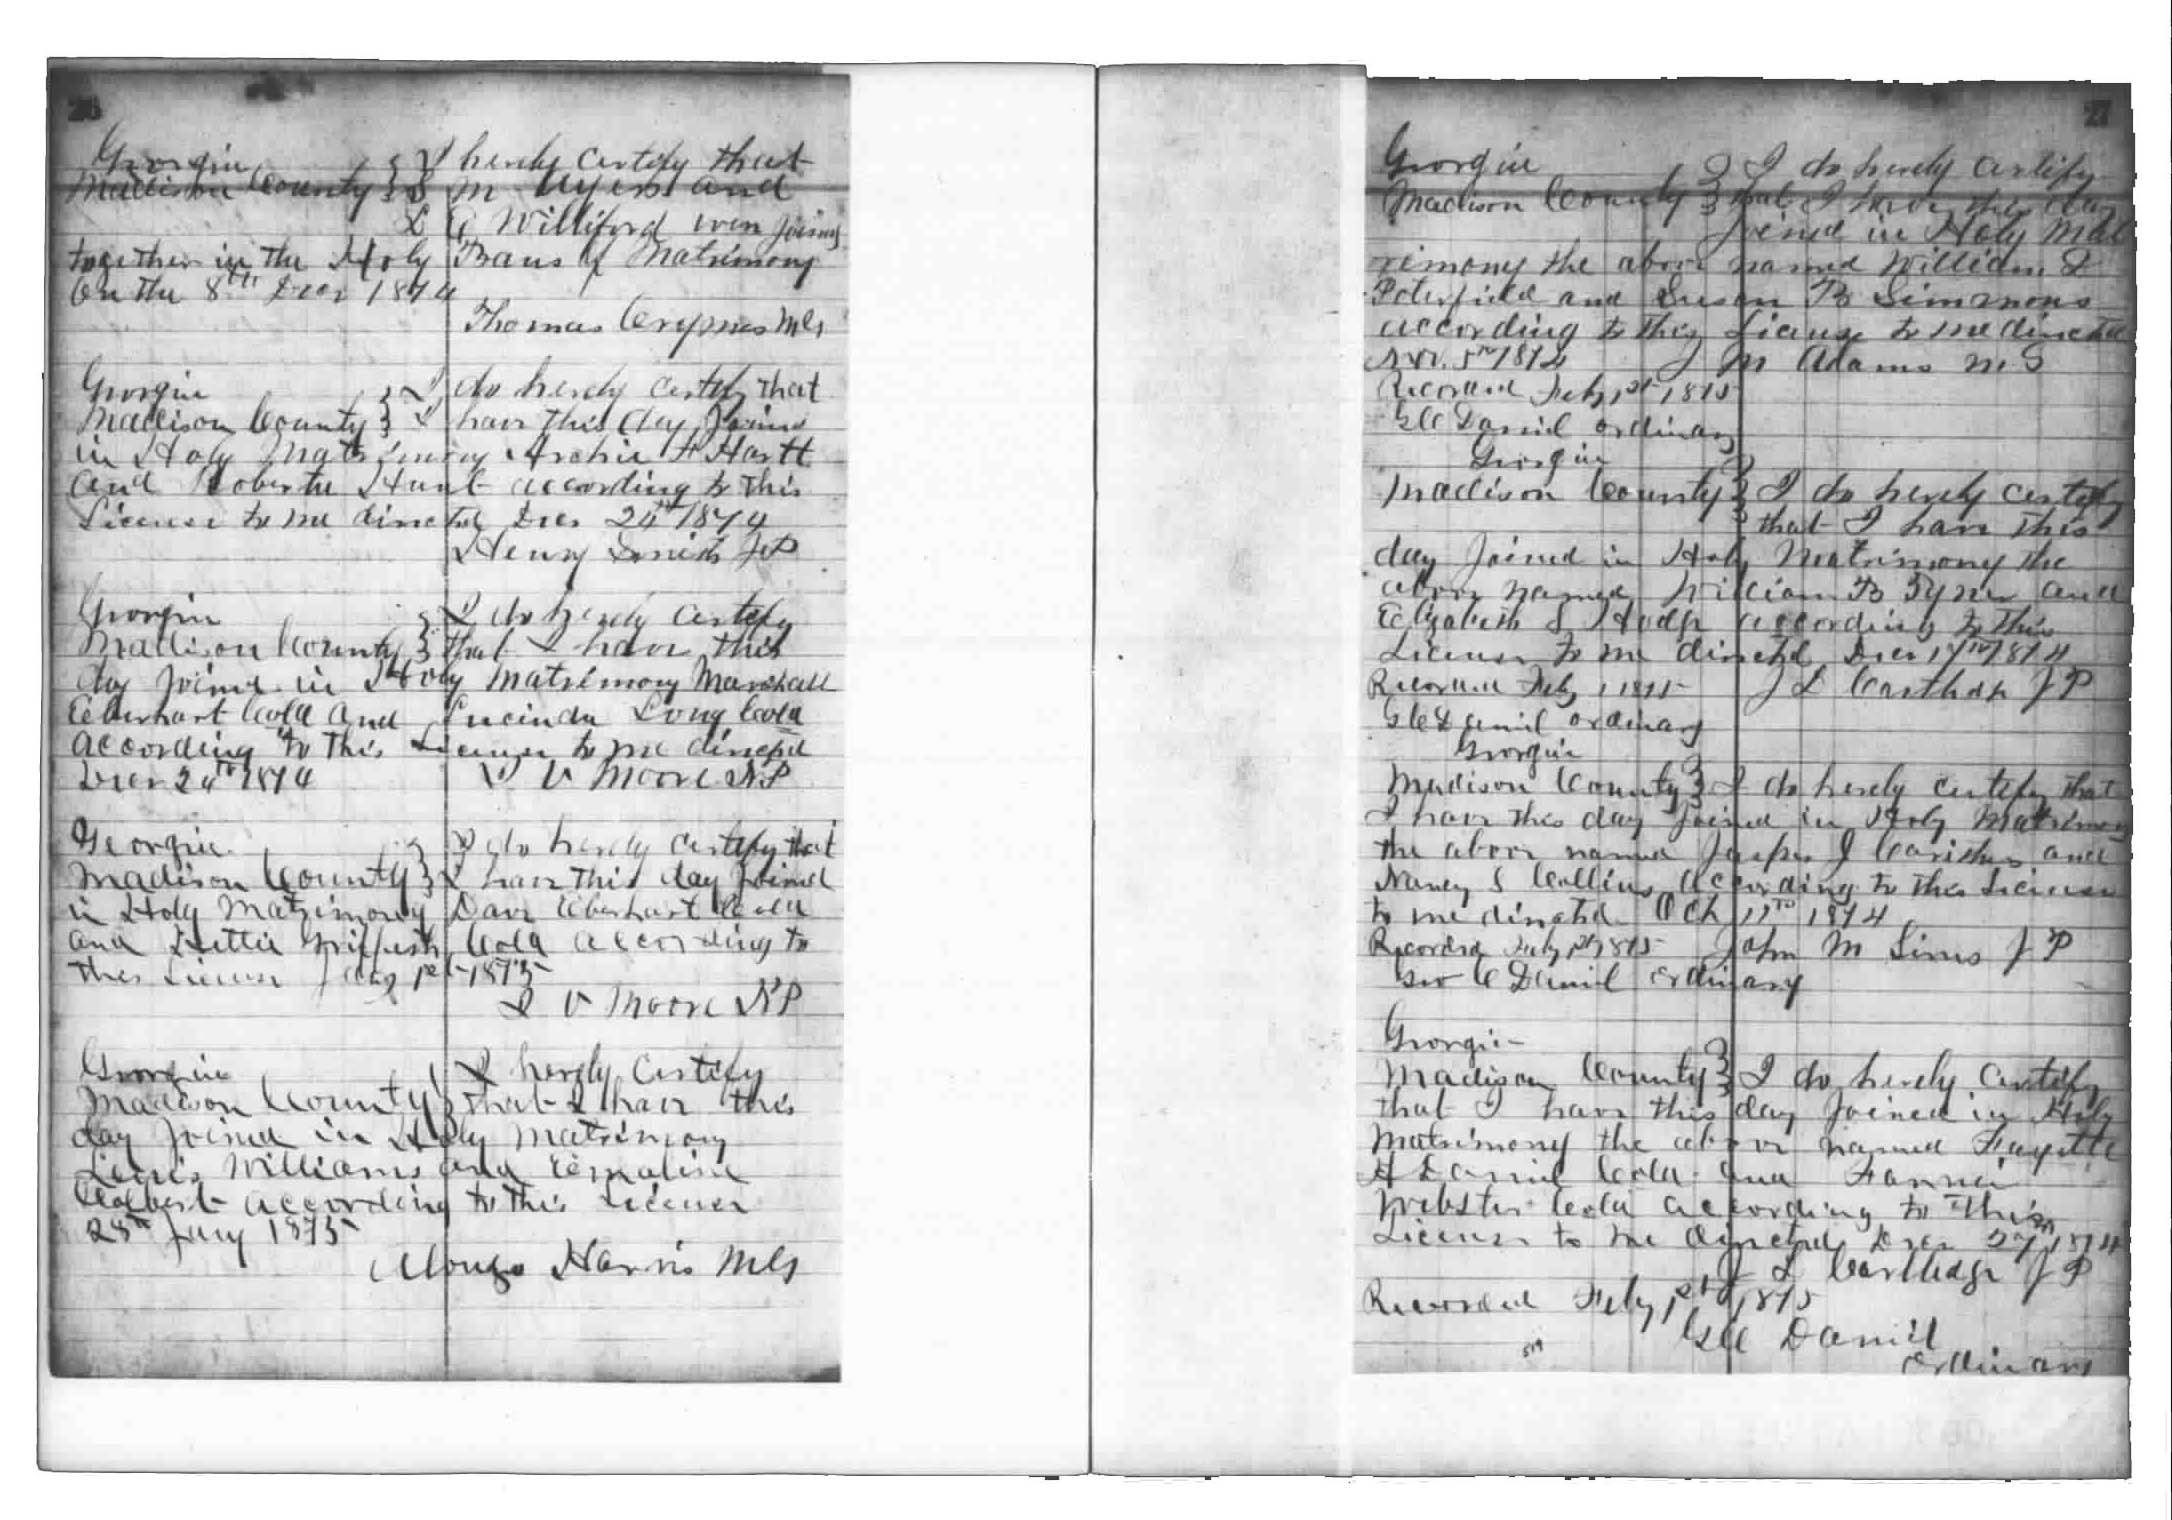 26
Georgia } I hereby certify that
Madison County } S M Ayers and
L G Williford were joined
together in the Holy Bans of Matrimony
On the 8th Decr 1874
Thomas Crymes MG
Georgia } I do hereby certify that
Madison County } I have this day Joined
in Holy Matrimony Archie H Hartt
and Roberta Hunt according to this
License to me directed Decr 24th 1874
Henry Smith JP
Georgia } I do hereby certify
Madison County } that I have this
day Joined in Holy Matrimony Marshall
Eberhart Cold and Lucinda Long Cold
According to this License to me directed
Decr 24th 1874 V Moore NP
Georgia } I do hereby certify that
Madison County } I have this day Joined
in Holy Matrimony Dave Eberhart Cold
and Hettie Griffeth Cold according to
this License Jany 1st 1875
V Moore NP
Georgia } I hereby Certify
Madison County } that I have this
day Joined in Holy Matrimony
Lewis Williams and Emaline
Colbert according to this License
28th Jany 1875
Alonzo Harris MG
27
Georgia } I do hereby certify
Madison County } that I have this day
Joined in Holy Mat
rimony the above named William S
Poterfield and Susan B Simmons
according to this License to me directed
Nov. 5th 1874 J M Adams M G
Recorded Feby 1st 1875
G C Daniel ordinary
Georgia
Madison County } I do hereby certify
that I have this
day Joined in Holy Matrimony the
above named William B Tyner and
Elizabeth S Hodge according to this
License to me directed Decr 17th 1874
Recorded Feby 1 1875 J L Carthage J P
G C Daniel ordinary
Georgia
Madison County } I do hereby certify that
I have this day Joined in Holy Matrimony
the above named Jasper J and
Nancy S Collins according to this License
to me directed Oct 11th 1874
Recorded Feby 1st 1875 John M Sims J P
Geo C Daniel ordinary
Georgia
Madison County } I do hereby certify
that I have this day Joined in Holy
Matrimony the above named Fayette
A Daniel Cold and Fannie
Webster Cold according to this
License to me directed Decr 27th 1874
J L Carthage J P
Recorded Feby 1st 1875
G C Daniel
ordinary